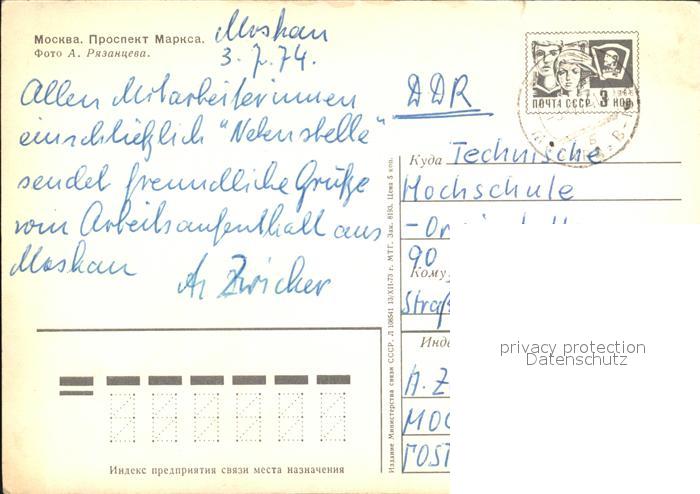 Москва. Проспект Маркса.
Фото А. Рязанцева.
Moskau
3. 7. 74.
Allen Mitarbeiterinnen
einschließlich "Nebenstelle"
sendet freundliche Grüße
vom Arbeitsaufenthalt aus
Moskau
Zwicker
DDR
ПОЧТА СССР 3 КОП
Куда Technische
Hochschule
90
Кому
Straß
Инде
A. Z
МОС
ГОСТ
Издание Министерства связи СССР. Л 108541 13/XII-73 г. МТГ. Зак. 8193. Цена 5 коп.
Индекс предприятия связи места назначения
privacy protection
Datenschutz